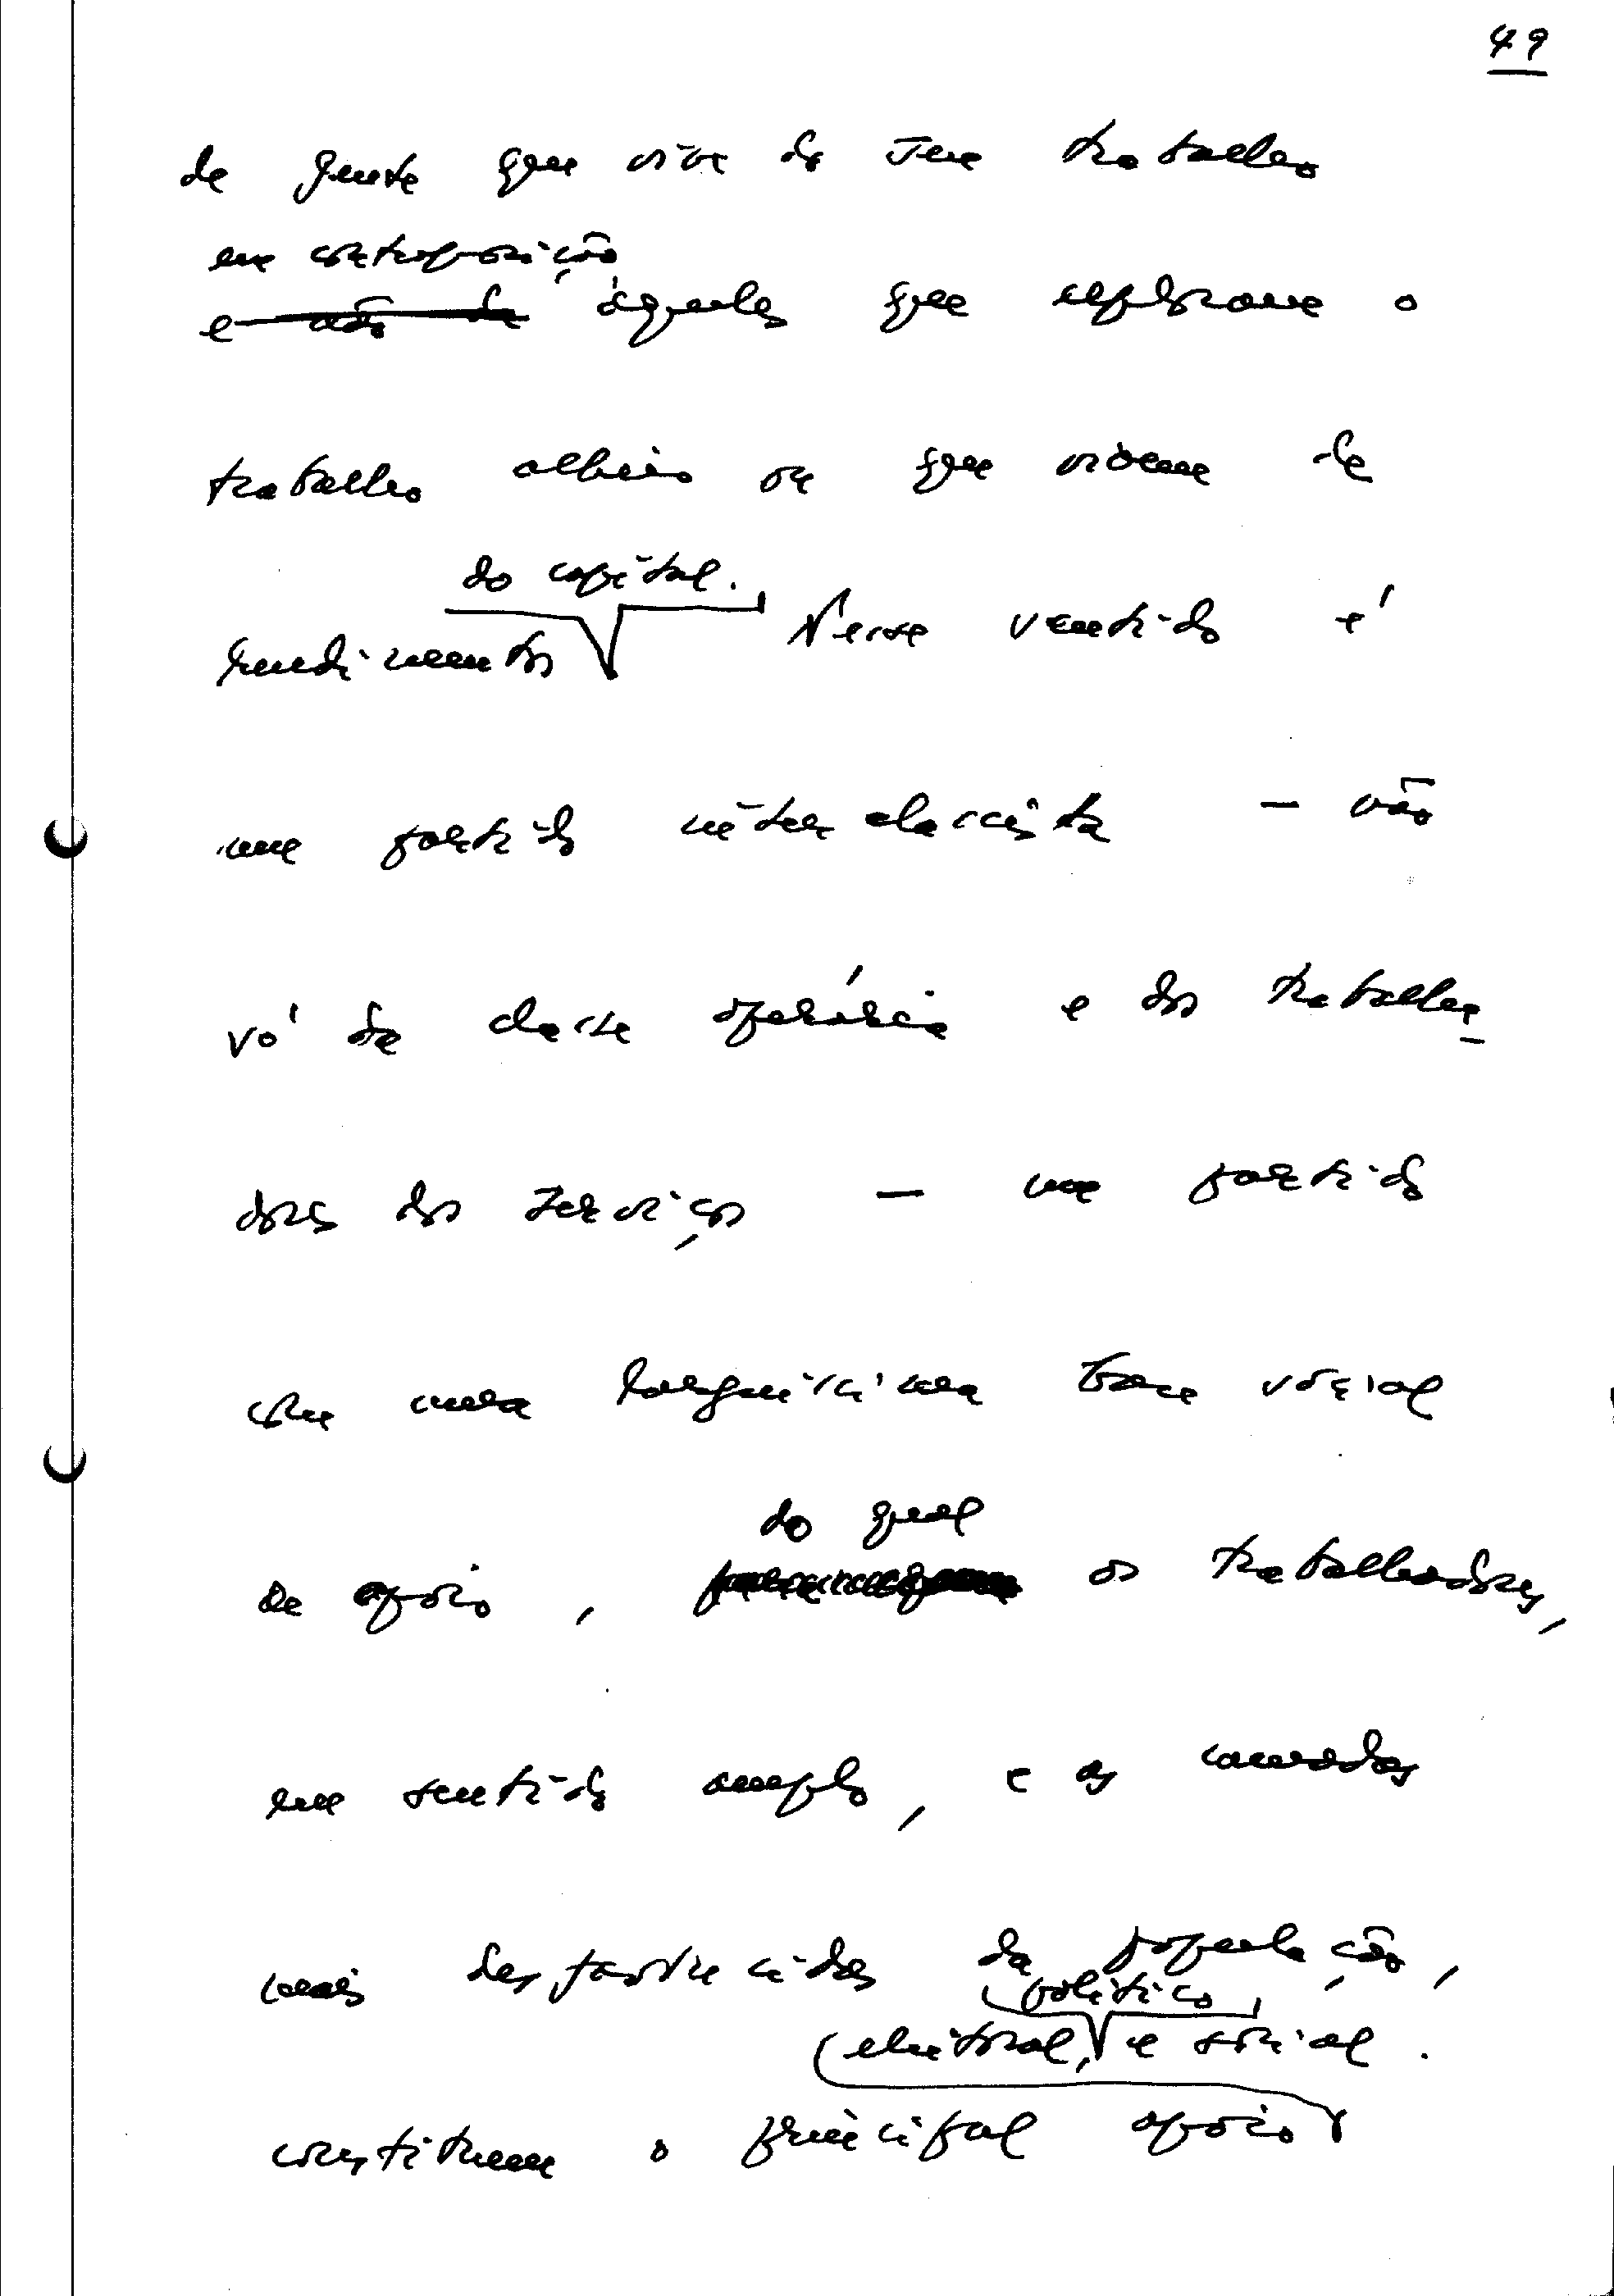 49
de gente que vive do seu trabalho
em contraposição
e não de àqueles que exploram o
trabalho alheio ou que vivem de
do capital.
rendimentos Nesse sentido é
um partido interclassista - não
só da classe operária e dos trabalha-
dores dos serviços - um partido
com uma larguíssima base social
de apoio, os trabalhadores,
do qual
em sentido amplo, e as camadas
mais desfavorecidas da população,
político
(eleitoral, e social.
constituem o principal apoio